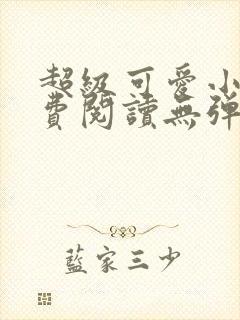 超級可愛小
費閱讀無彈
藍家三少